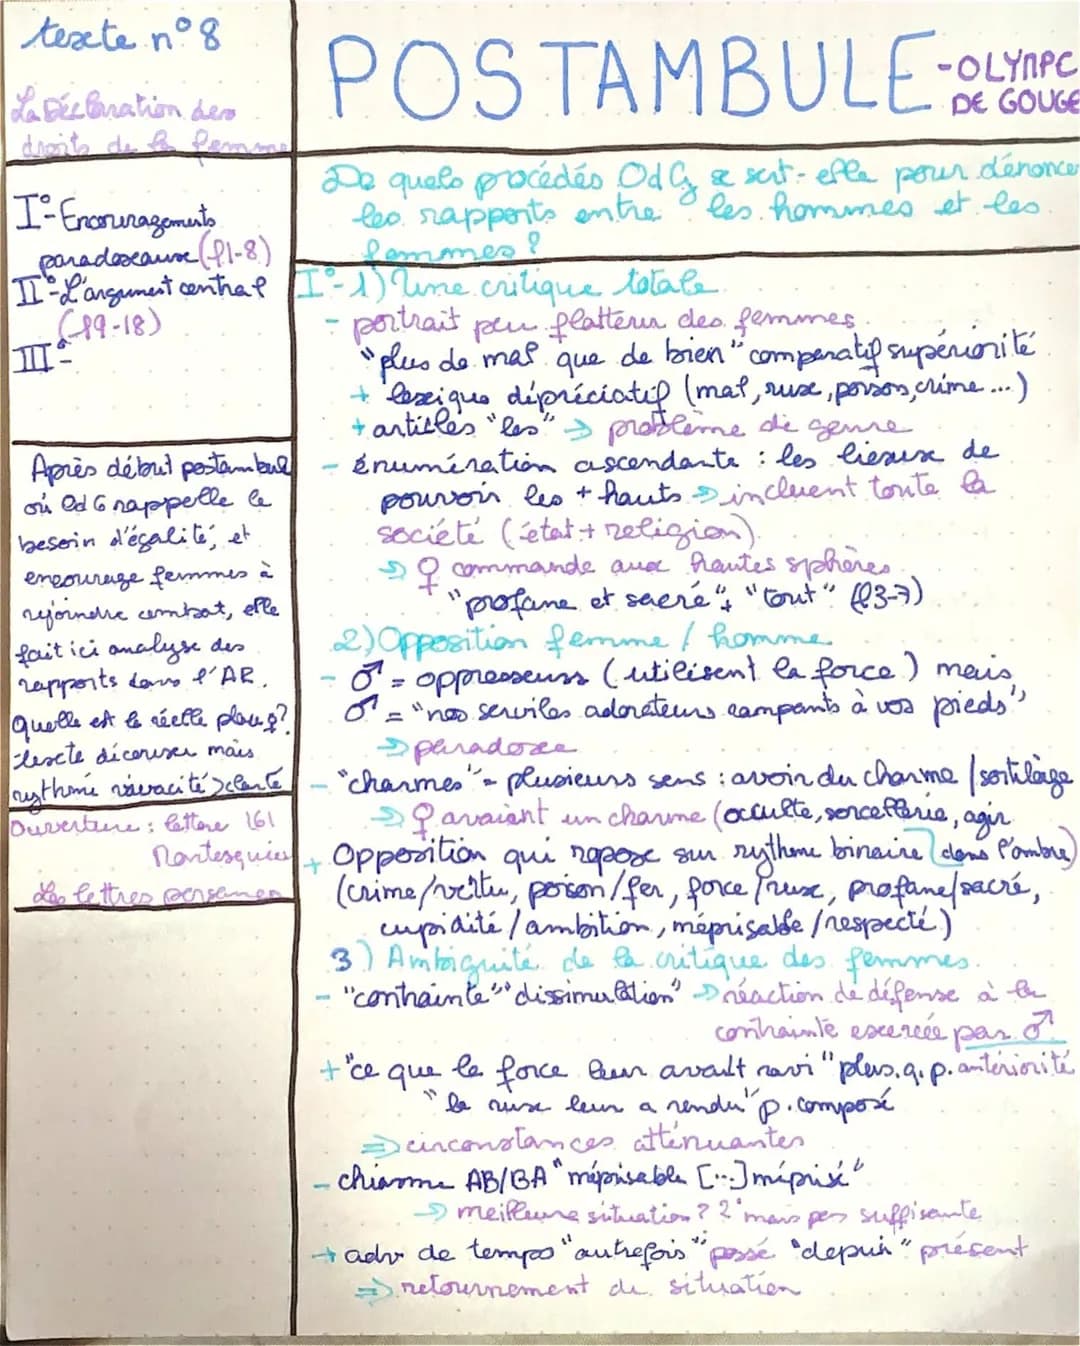 texte n°8
La Déclaration des
droits de la femme
I°- Encouragements
paradoxaux (l1-8)
II°- L'argument central
(l9-18)
III°-
Après début postambule
où OdG rappelle le
besoin d'égalité, et
encourage femmes à
rejoindre combat, elle
fait ici analyse des
rapports dans l'AR.
Quelle est la réelle place ♀?
texte décousu mais
rythmé vivacité > clarté
Ouverture : lettre 161
Montesquieu
Les lettres persanes
POSTAMBULE -OLYMPE
DE GOUGE
De quels procédés OdG se sert-elle pour dénoncer
les rapports entre les hommes et les
femmes ?
I°-1) Une critique totale
- portrait peu flatteur des femmes
"plus de mal que de bien" comparatif supériorité
+ lexique dépréciatif (mal, ruse, poison, crime ...)
+ articles "les" → problème de genre
- énumération ascendante : les lieux de
pouvoir les + hauts → incluent toute la
société (état + religion)
→ ♀ commande aux hautes sphères
"profane et sacré", "tout" (l3-7)
2) Opposition femme / homme
- ♂ = oppresseurs (utilisent la force) mais
♂ = "nos serviles adorateurs rampants à vos pieds"
→ paradoxe
- "charmes" = plusieurs sens : avoir du charme / sortilège
→ ♀ avaient un charme (occulte, sorcellerie, agir
dans l'ombre)
+ Opposition qui repose sur rythme binaire
(crime/vertu, poison/fer, force/ruse, profane/sacré,
cupidité / ambition, méprisable / respecté)
3) Ambiguité de la critique des femmes
- "contrainte" "dissimulation" → réaction de défense à la
contrainte exercée par ♂
+ "ce que la force leur avait ravi" plus.q.p. antériorité
"la ruse leur a rendu" p. composé
⇒ circonstances atténuantes
- chiasme AB/BA "méprisable [...] méprisé"
→ meilleure situation ? mais pas suffisante
→ adv de temps "autrefois" passé "depuis" présent
⇒ retournement de situation